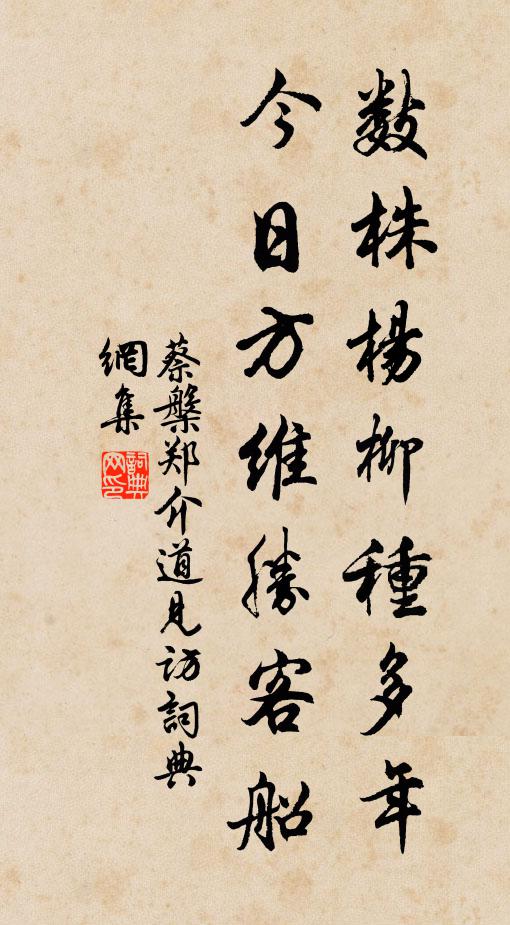 数株楊柳種多年
今日方維勝客船
蔡槃郑介道見访詞典
網集
詞典網印